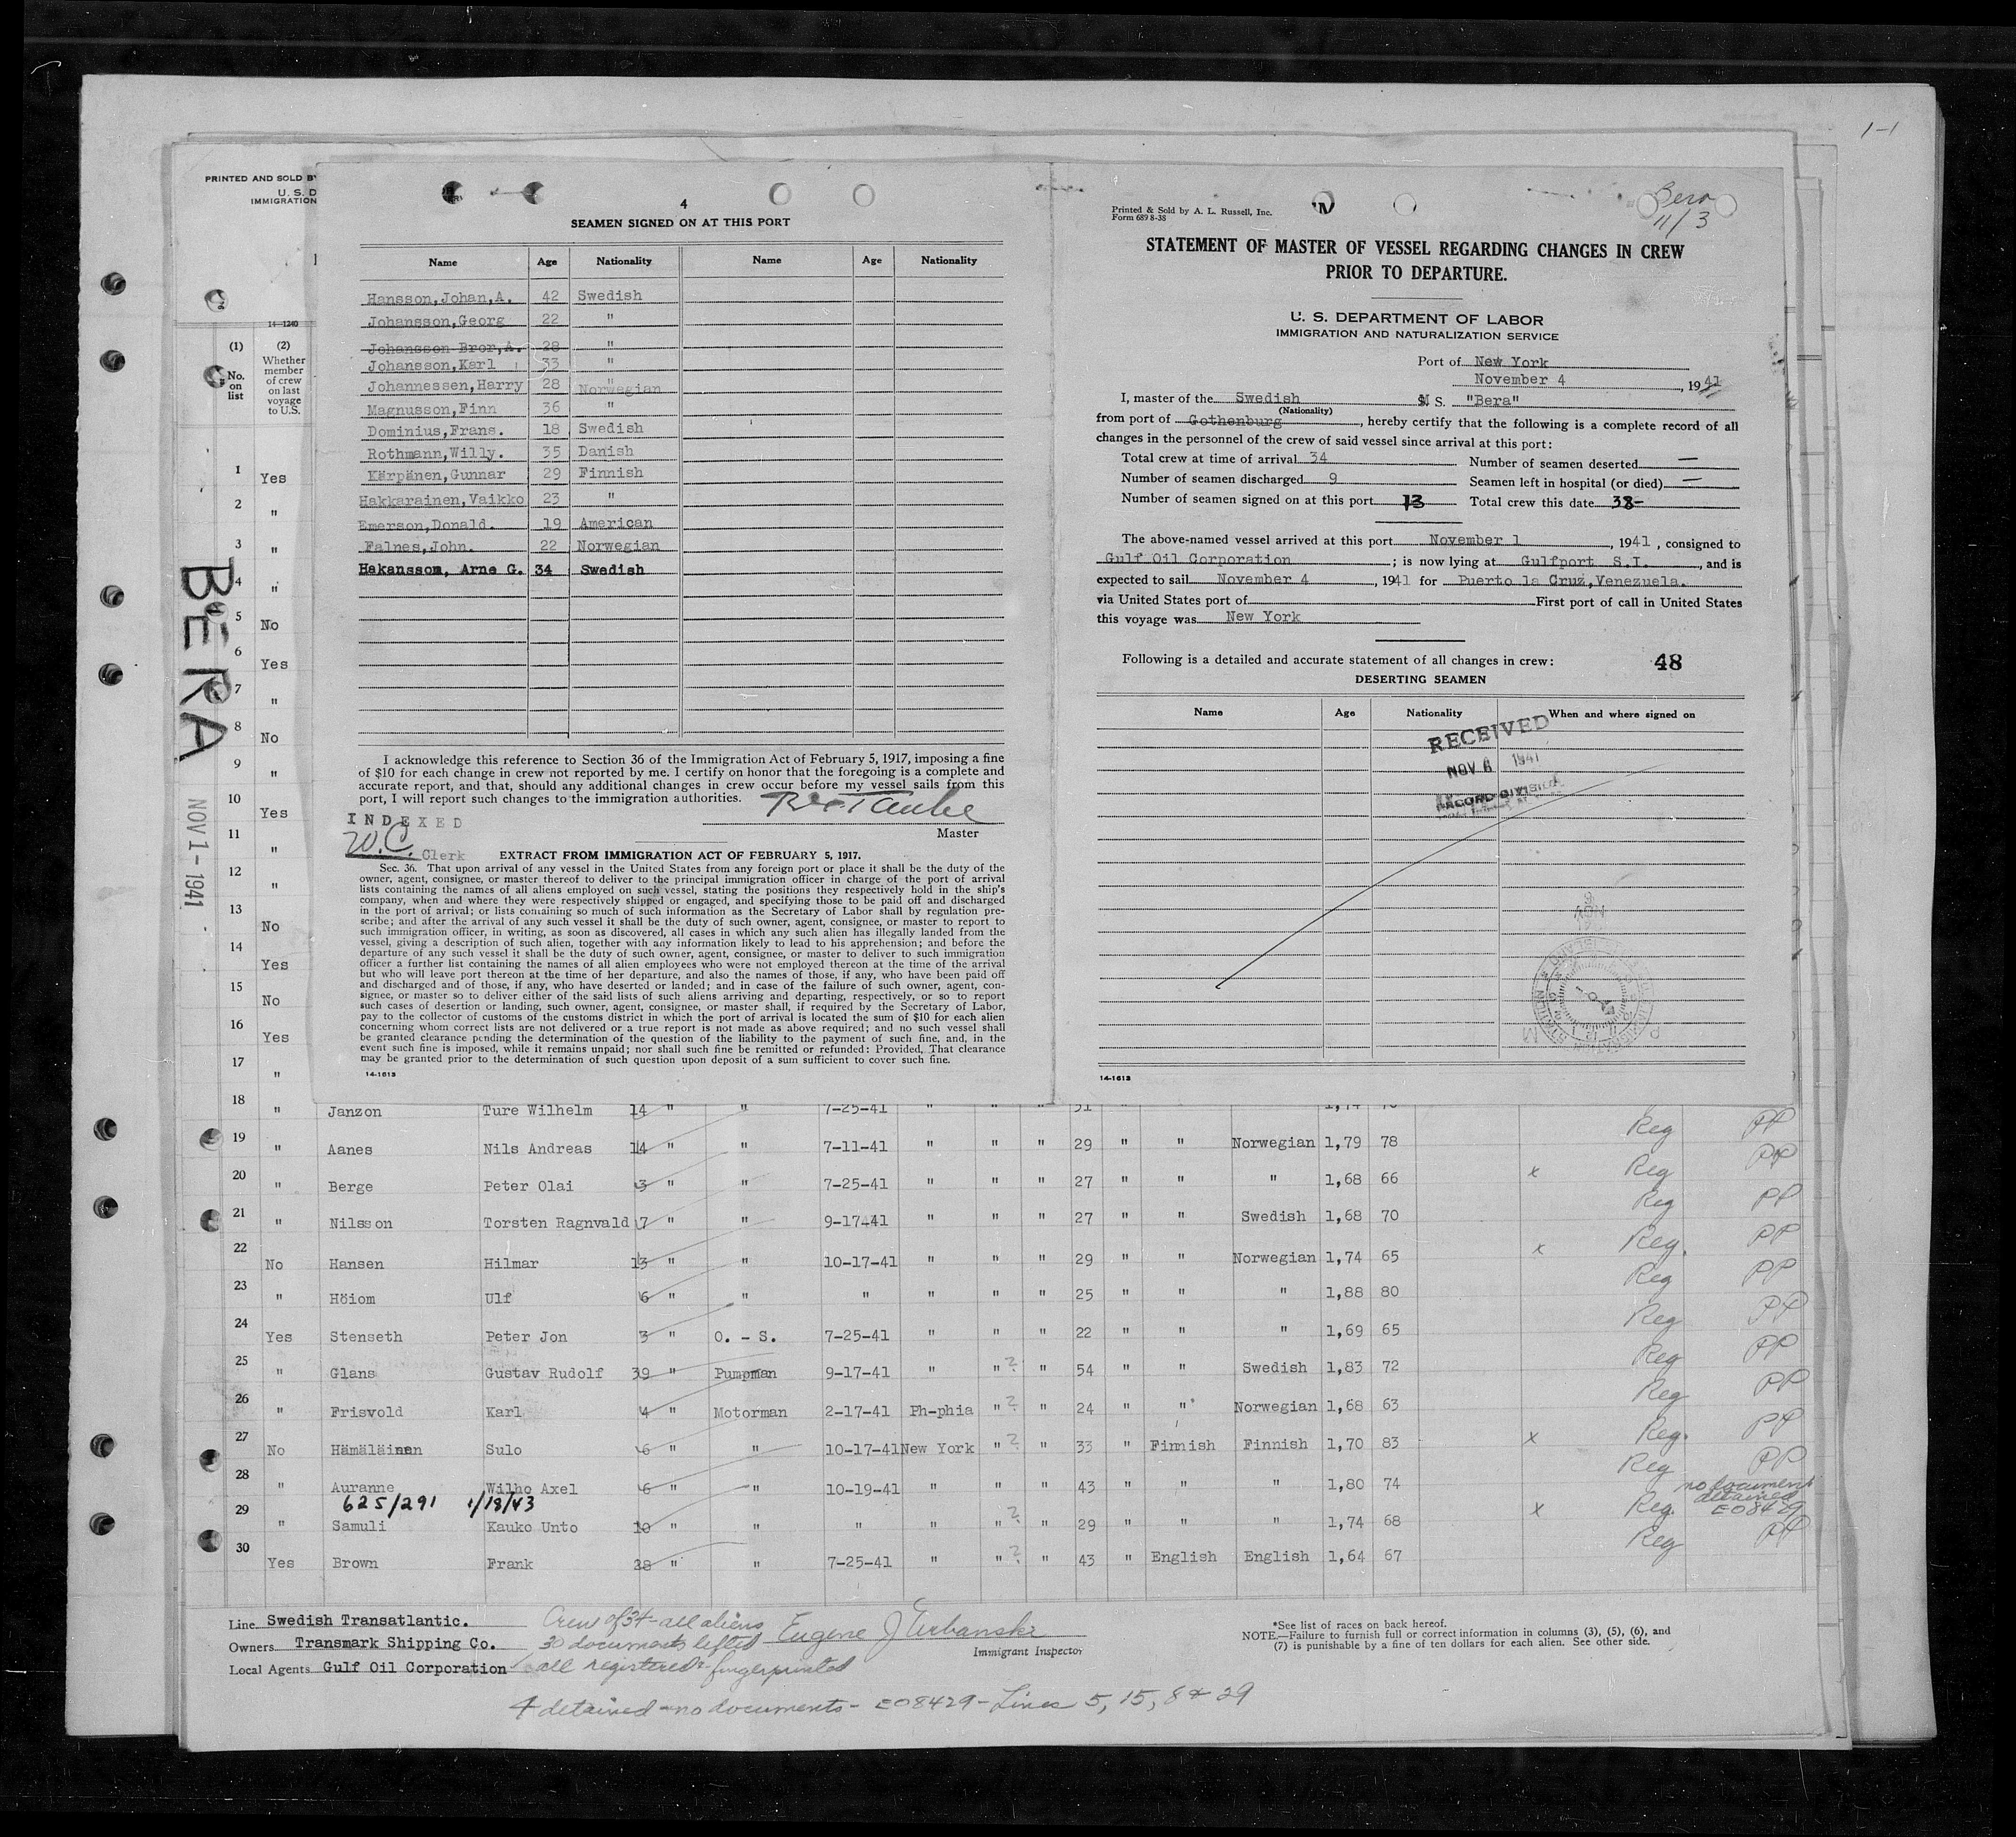 1-1
PRINTED AND SOLD BY
U. S. D
IMMIGRATION
14-1240
(1) (2)
No. on list
Whether member of crew on last voyage to U.S.
1 Yes
2 "
3 "
4 "
5 No
6 Yes
7 "
8 No
9 "
10 Yes
11 "
12 "
13 No
14 Yes
15 No
16 Yes
17 "
BERA
NOV 1 - 1941
4
SEAMEN SIGNED ON AT THIS PORT
Name Age Nationality Name Age Nationality
Hansson, Johan, A. 42 Swedish
Johansson, Georg 22 "
Johansson Bror, A. 28 "
Johansson, Karl 33 "
Johannessen, Harry 28 Norwegian
Magnusson, Finn 36 "
Dominius, Frans. 18 Swedish
Rothmann, Willy. 35 Danish
Kärpänen, Gunnar 29 Finnish
Hakkarainen, Vaikko 23 "
Emerson, Donald. 19 American
Falnes, John. 22 Norwegian
Hakansson, Arne G. 34 Swedish
I acknowledge this reference to Section 36 of the Immigration Act of February 5, 1917, imposing a fine
of $10 for each change in crew not reported by me. I certify on honor that the foregoing is a complete and
accurate report, and that, should any additional changes in crew occur before my vessel sails from this
port, I will report such changes to the immigration authorities.
Master
INDEXED
W.C. Clerk
EXTRACT FROM IMMIGRATION ACT OF FEBRUARY 5, 1917.
Sec. 36. That upon arrival of any vessel in the United States from any foreign port or place it shall be the duty of the
owner, agent, consignee, or master thereof to deliver to the principal immigration officer in charge of the port of arrival
lists containing the names of all aliens employed on such vessel, stating the positions they respectively hold in the ship's
company, when and where they were respectively shipped or engaged, and specifying those to be paid off and discharged
in the port of arrival; or lists containing so much of such information as the Secretary of Labor shall by regulation pre-
scribe; and after the arrival of any such vessel it shall be the duty of such owner, agent, consignee, or master to report to
such immigration officer, in writing, as soon as discovered, all cases in which any such alien has illegally landed from the
vessel, giving a description of such alien, together with any information likely to lead to his apprehension; and before the
departure of any such vessel it shall be the duty of such owner, agent, consignee, or master to deliver to such immigration
officer a further list containing the names of all alien employees who were not employed thereon at the time of the arrival
but who will leave port thereon at the time of her departure, and also the names of those, if any, who have been paid off
and discharged and of those, if any, who have deserted or landed; and in case of the failure of such owner, agent, con-
signee, or master so to deliver either of the said lists of such aliens arriving and departing, respectively, or so to report
such cases of desertion or landing, such owner, agent, consignee, or master shall, if required by the Secretary of Labor,
pay to the collector of customs of the customs district in which the port of arrival is located the sum of $10 for each alien
concerning whom correct lists are not delivered or a true report is not made as above required; and no such vessel shall
be granted clearance pending the determination of the question of the liability to the payment of such fine, and, in the
event such fine is imposed, while it remains unpaid; nor shall such fine be remitted or refunded: Provided, That clearance
may be granted prior to the determination of such question upon deposit of a sum sufficient to cover such fine.
14-1613
Printed & Sold by A. L. Russell, Inc.
Form 689 8-38
Bera
11/3
STATEMENT OF MASTER OF VESSEL REGARDING CHANGES IN CREW
PRIOR TO DEPARTURE.
U. S. DEPARTMENT OF LABOR
IMMIGRATION AND NATURALIZATION SERVICE
Port of New York
November 4, 1941
I, master of the Swedish M S. "Bera"
(Nationality)
from port of Gothenburg, hereby certify that the following is a complete record of all
changes in the personnel of the crew of said vessel since arrival at this port:
Total crew at time of arrival 34 Number of seamen deserted —
Number of seamen discharged 9 Seamen left in hospital (or died) —
Number of seamen signed on at this port 13 Total crew this date 38-
The above-named vessel arrived at this port November 1, 1941, consigned to
Gulf Oil Corporation; is now lying at Gulfport S.I., and is
expected to sail November 4, 1941 for Puerto la Cruz, Venezuela.
via United States port of First port of call in United States
this voyage was New York
Following is a detailed and accurate statement of all changes in crew: 48
DESERTING SEAMEN
Name Age Nationality When and where signed on
RECEIVED
NOV 6 1941
RECORD DIVISION
14-1613
18 " Janzon Ture Wilhelm 14 " " 7-25-41 " " " 31 "
19 " Aanes Nils Andreas 14 " " 7-11-41 " " " 29 " " Norwegian 1,79 78 Reg PP
20 " Berge Peter Olai 3 " " 7-25-41 " " " 27 " " " 1,68 66 x Reg PP
21 " Nilsson Torsten Ragnvald 7 " " 9-17-41 " " " 27 " " Swedish 1,68 70 Reg PP
22 No Hansen Hilmar 13 " " 10-17-41 " " " 29 " " Norwegian 1,74 65 x Reg. PP
23 " Höiom Ulf 6 " " " " " " 25 " " " 1,88 80 Reg PP
24 Yes Stenseth Peter Jon 3 " O. - S. 7-25-41 " " " 22 " " " 1,69 65 Reg PP
25 " Glans Gustav Rudolf 39 " Pumpman 9-17-41 " " ? " 54 " " Swedish 1,83 72 Reg PP
26 " Frisvold Karl 4 " Motorman 2-17-41 Ph-phia " ? " 24 " " Norwegian 1,68 63 Reg PP
27 No Hämäläinen Sulo 6 " " 10-17-41 New York " ? " 33 " Finnish Finnish 1,70 83 x Reg. PP
28 " Auranne Wilho Axel 6 " " 10-19-41 " " " 43 " " " 1,80 74 Reg PP
625/291 1/18/43
29 " Samuli Kauko Unto 10 " " " " " ? " 29 " " " 1,74 68 x Reg. no document detained EO8429
30 Yes Brown Frank 28 " " 7-25-41 " " ? " 43 " English English 1,64 67 Reg PP
Line Swedish Transatlantic.
Owners Transmark Shipping Co.
Local Agents Gulf Oil Corporation
Crew of 34 - all aliens
30 documents lifted
all registered & fingerprinted
Eugene J Urbanski
Immigrant Inspector
*See list of races on back hereof.
NOTE.—Failure to furnish full or correct information in columns (3), (5), (6), and
(7) is punishable by a fine of ten dollars for each alien. See other side.
4 detained - no documents - EO8429 - Lines 5, 15, 8 & 29